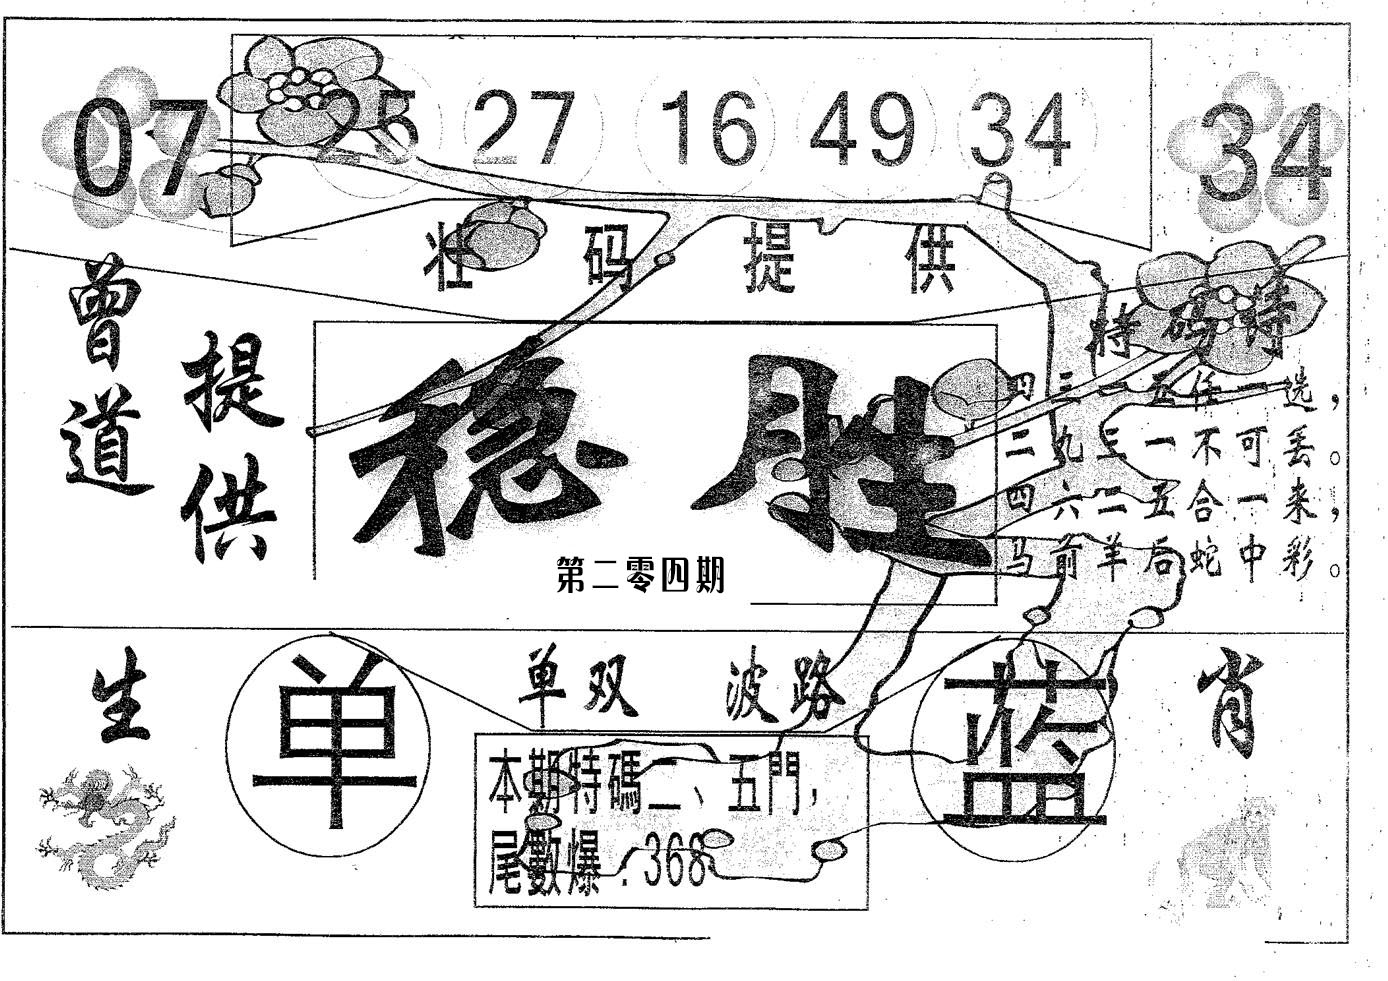 07 25 27 16 49 34 34
壮码提供
曾道
提供
特码诗
稳胜
四三一五任一选，
二九三一不可丢。
四六二五合一来，
马前羊后蛇中彩。
第二零四期
生
单
单双 波路
蓝
肖
本期特碼二、五門，
尾數爆：368